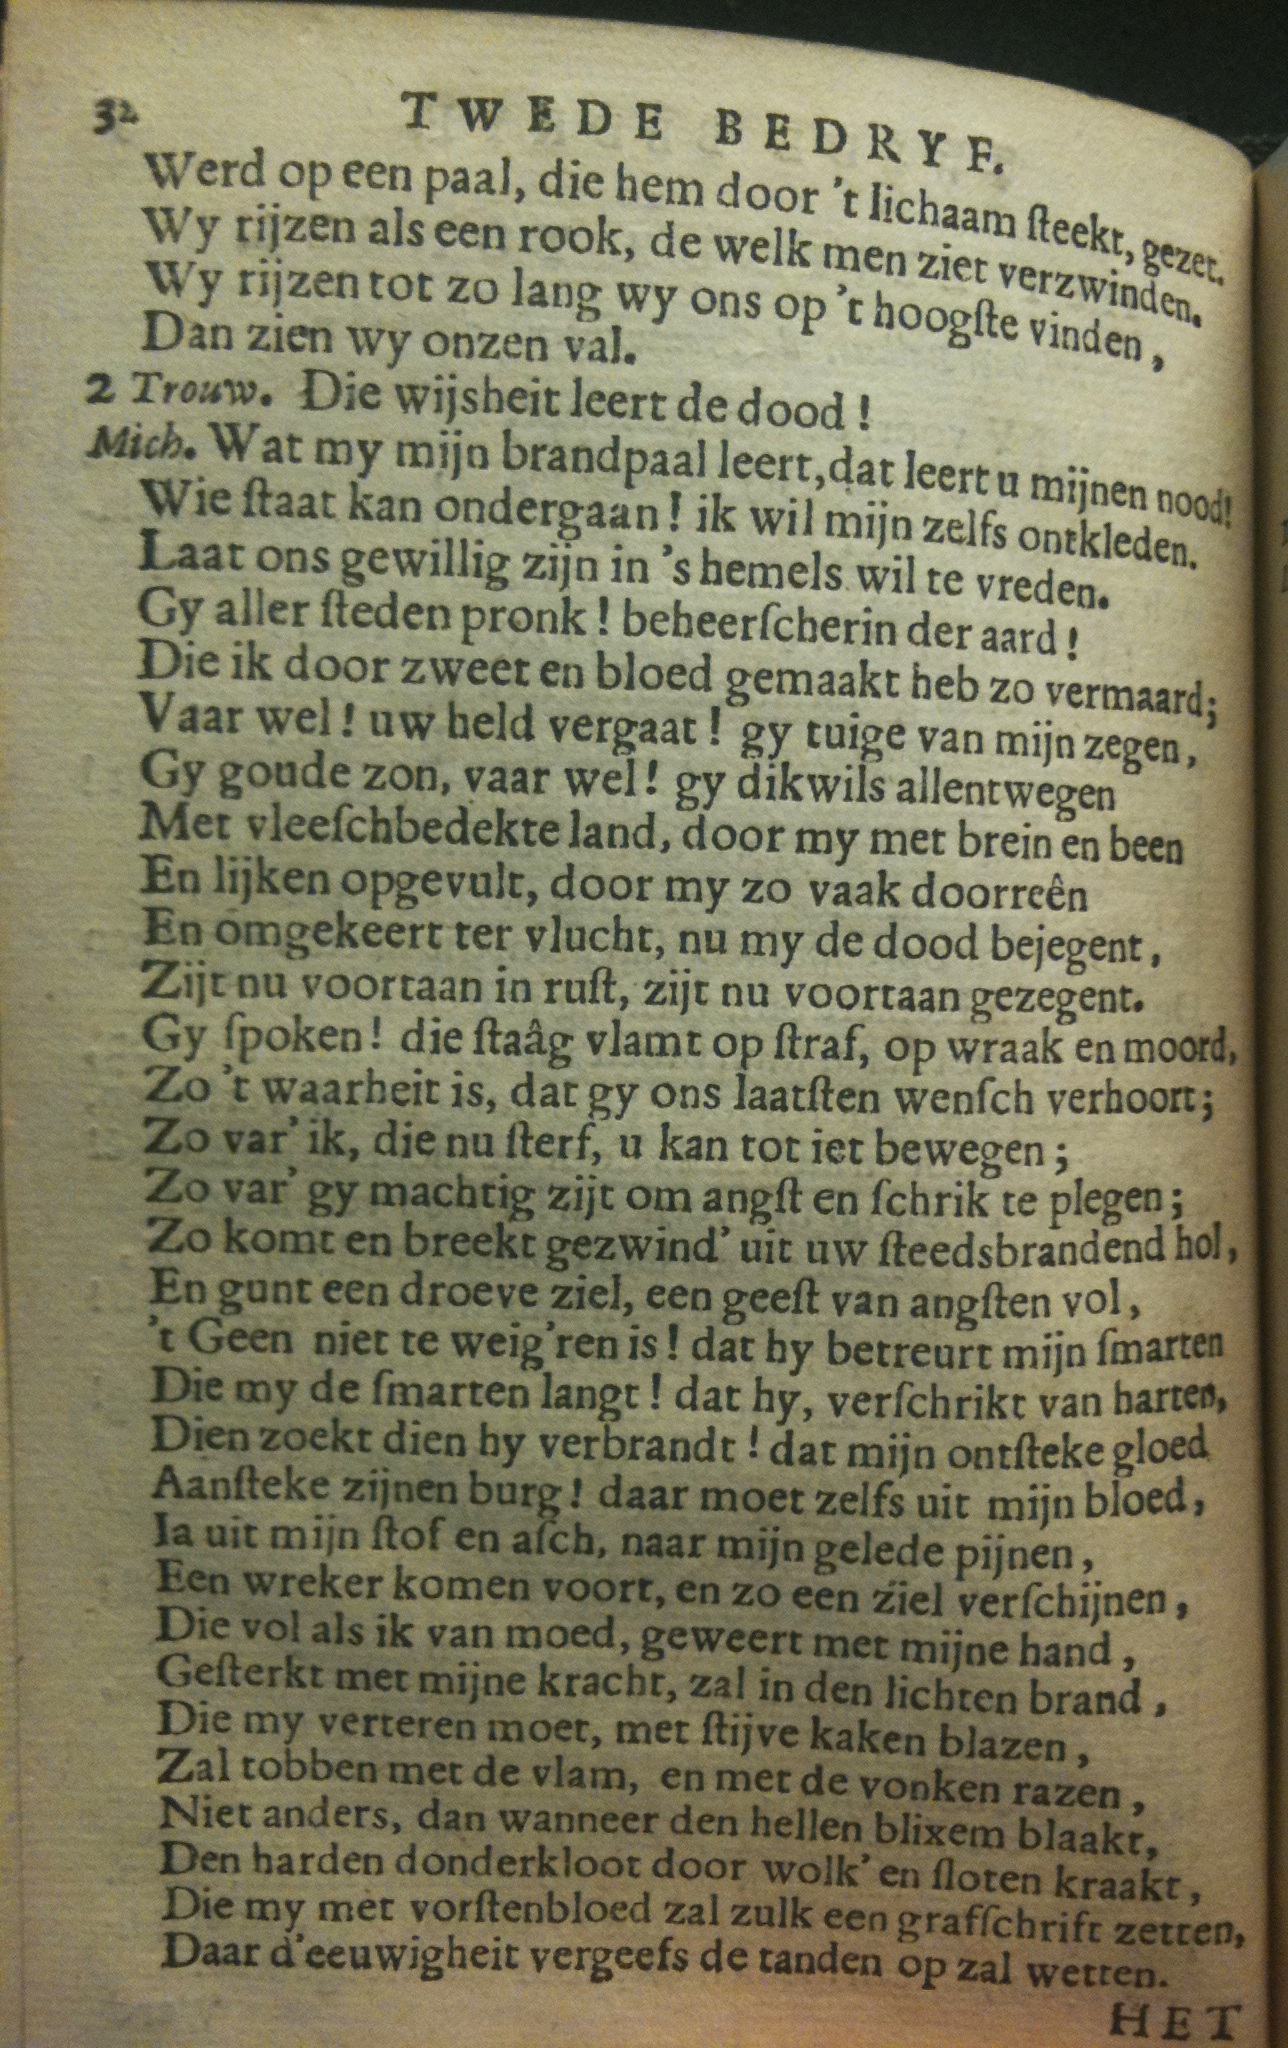 32 TWEDE BEDRYF.
Werd op een paal, die hem door 't lichaam ſteekt, gezet.
Wy rijzen als een rook, de welk men ziet verzwinden.
Wy rijzen tot zo lang wy ons op 't hoogſte vinden,
Dan zien wy onzen val.
2 Trouw. Die wijsheit leert de dood!
Mich. Wat my mijn brandpaal leert, dat leert u mijnen nood!
Wie ſtaat kan ondergaan! ik wil mijn zelfs ontkleden.
Laat ons gewillig zijn in 's hemels wil te vreden.
Gy aller ſteden pronk! beheerſcherin der aard!
Die ik door zweet en bloed gemaakt heb zo vermaard;
Vaar wel! uw held vergaat! gy tuige van mijn zegen,
Gy goude zon, vaar wel! gy dikwils allentwegen
Met vleeſchbedekte land, door my met brein en been
En lijken opgevult, door my zo vaak doorreên
En omgekeert ter vlucht, nu my de dood bejegent,
Zijt nu voortaan in ruſt, zijt nu voortaan gezegent.
Gy ſpoken! die ſtaâg vlamt op ſtraf, op wraak en moord,
Zo 't waarheit is, dat gy ons laatſten wenſch verhoort;
Zo var' ik, die nu ſterf, u kan tot iet bewegen;
Zo var' gy machtig zijt om angſt en ſchrik te plegen;
Zo komt en breekt gezwind' uit uw ſteedsbrandend hol,
En gunt een droeve ziel, een geeſt van angſten vol,
't Geen niet te weig'ren is! dat hy betreurt mijn ſmarten
Die my de ſmarten langt! dat hy, verſchrikt van harten,
Dien zoekt dien hy verbrandt! dat mijn ontſteke gloed
Aanſteke zijnen burg! daar moet zelfs uit mijn bloed,
Ia uit mijn ſtof en aſch, naar mijn gelede pijnen,
Een wreker komen voort, en zo een ziel verſchijnen,
Die vol als ik van moed, geweert met mijne hand,
Geſterkt met mijne kracht, zal in den lichten brand,
Die my verteren moet, met ſtijve kaken blazen,
Zal tobben met de vlam, en met de vonken razen,
Niet anders, dan wanneer den hellen blixem blaakt,
Den harden donderkloot door wolk' en ſloten kraakt,
Die my met vorſtenbloed zal zulk een grafſchrift zetten,
Daar d'eeuwigheit vergeefs de tanden op zal wetten.
HET